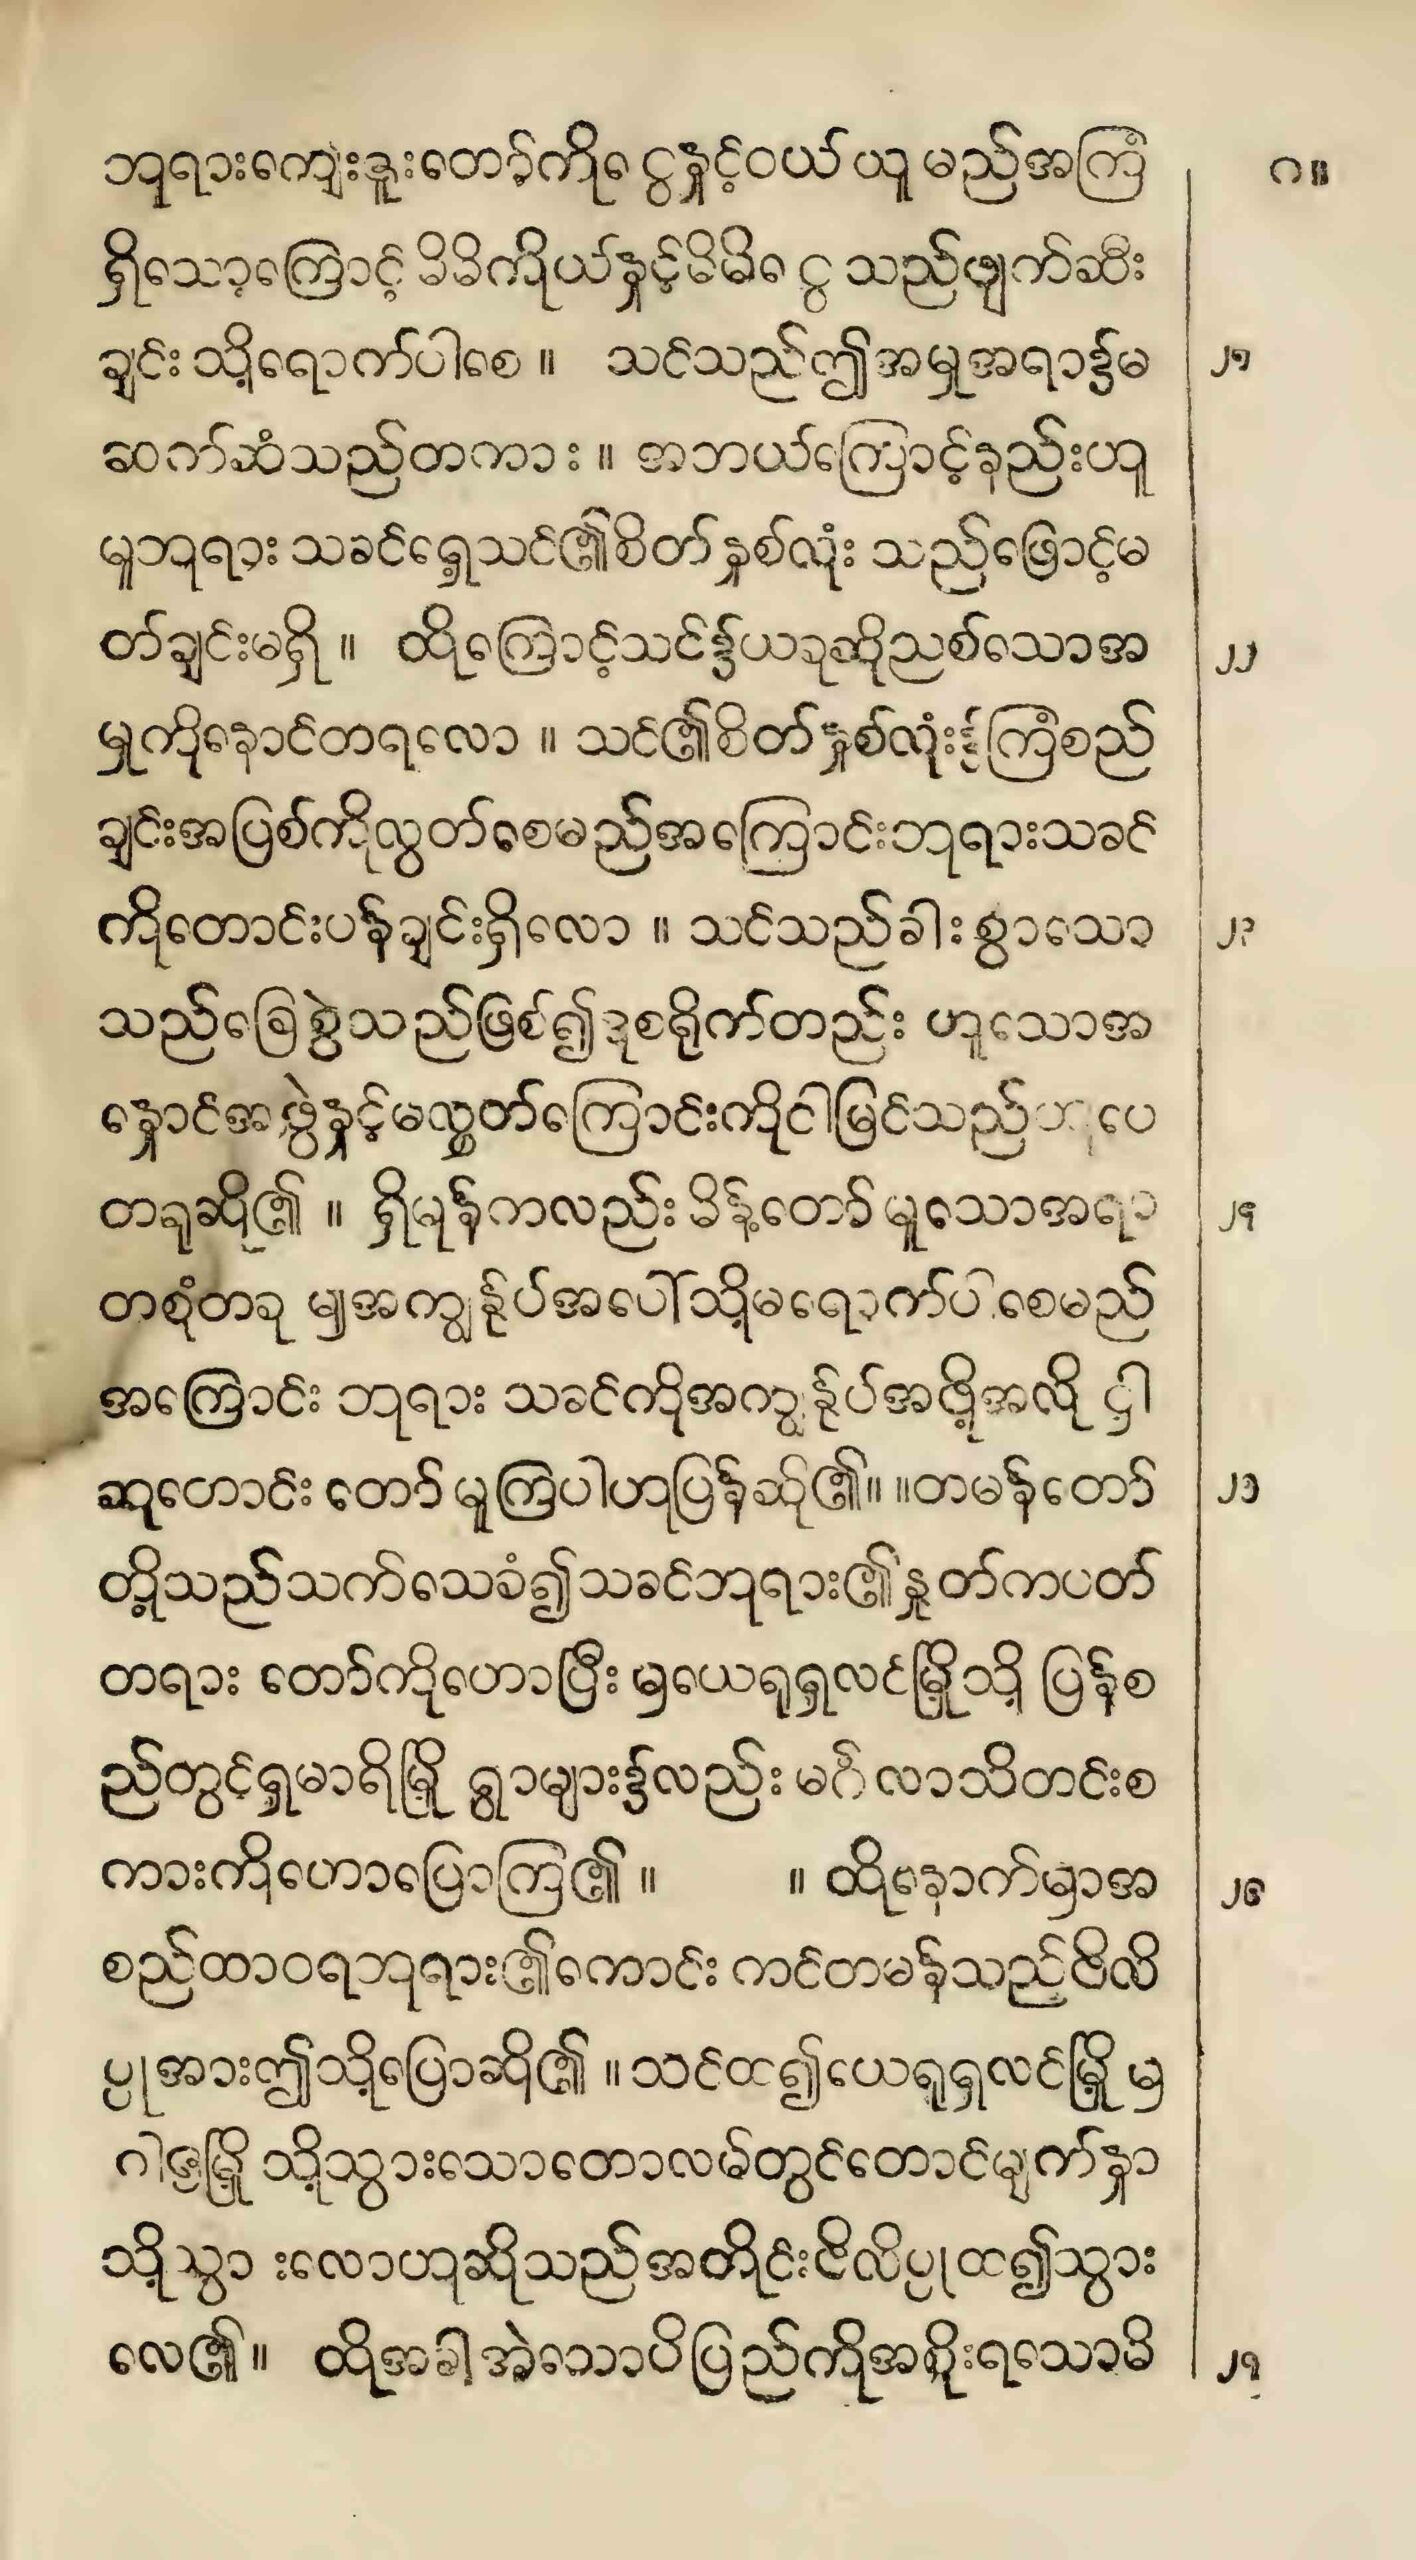 ဘုရားကျေးဇူးတော့်ကိုငွေနှင့်ဝယ်ယူမည်အကြံ ဂ။
ရှိသော့ကြောင့် မိမိကိုယ်နှင့်မိမိငွေသည်ဖျက်ဆီး
ချင်းသို့ရောက်ပါစေ။ သင်သည်ဤအမှုအရာ၌မ ၂၁
ဆက်ဆံသည်တကား။ အဘယ်ကြောင့်နည်းဟူ
မူဘုရားသခင်ရှေ့သင်၏စိတ်နှစ်လုံးသည်ဖြောင့်မ
တ်ချင်းမရှိ။ ထိုကြောင့်သင်၌ယခုဆိုညစ်သောအ ၂၂
မှုကိုနောင်တရလော။ သင်၏စိတ်နှစ်လုံး၌ကြံစည်
ချင်းအပြစ်ကိုလွတ်စေမည်အကြောင်းဘုရားသခင်
ကိုတောင်းပန်ချင်းရှိလော။ သင်သည်ခါးစွာသော ၂၃
သည်ခြေစွဲသည်ဖြစ်၍ဒုစရိုက်တည်းဟူသောအ
နှောင်အဖွဲ့နှင့်မလွှတ်ကြောင်းကိုငါမြင်သည်ဟုပေ
တရုဆို၏။ ရှိမုန်ကလည်းမိန့်တော်မူသောအရာ ၂၄
တစုံတခုမျှအကျွန်ုပ်အပေါ်သို့မရောက်ပါစေမည်
အကြောင်းဘုရားသခင်ကိုအကျွန်ုပ်အဖို့အလို့ငှါ
ဆုတောင်းတော်မူကြပါဟုပြန်ဆို၏။ ။တမန်တော် ၂၅
တို့သည်သက်သေခံ၍သခင်ဘုရား၏နှုတ်ကပတ်
တရားတော်ကိုဟောပြီးမှယေရုရှလင်မြို့သို့ပြန်စ
ည်တွင့်ရှမာရိမြို့ရွာများ၌လည်းမင်္ဂလာသိတင်းစ
ကားကိုဟောပြောကြ၏။ ။ထိုနောက်မှာအ ၂၆
စည်ထာဝရဘုရား၏ကောင်းကင်တမန်သည်ဖိလိ
ပ္ပုအားဤသို့ပြောဆို၏။သင်ထ၍ယေရုရှလင်မြို့မှ
ဂါဇမြို့သို့သွားသောတောလမ်တွင်တောင်မျက်နှာ
သို့သွားလောဟုဆိုသည်အတိုင်းဖိလိပ္ပုထ၍သွား
လေ၏။ ထိုအခါအဲသောပိပြည်ကိုအစိုးရသောမိ ၂၇